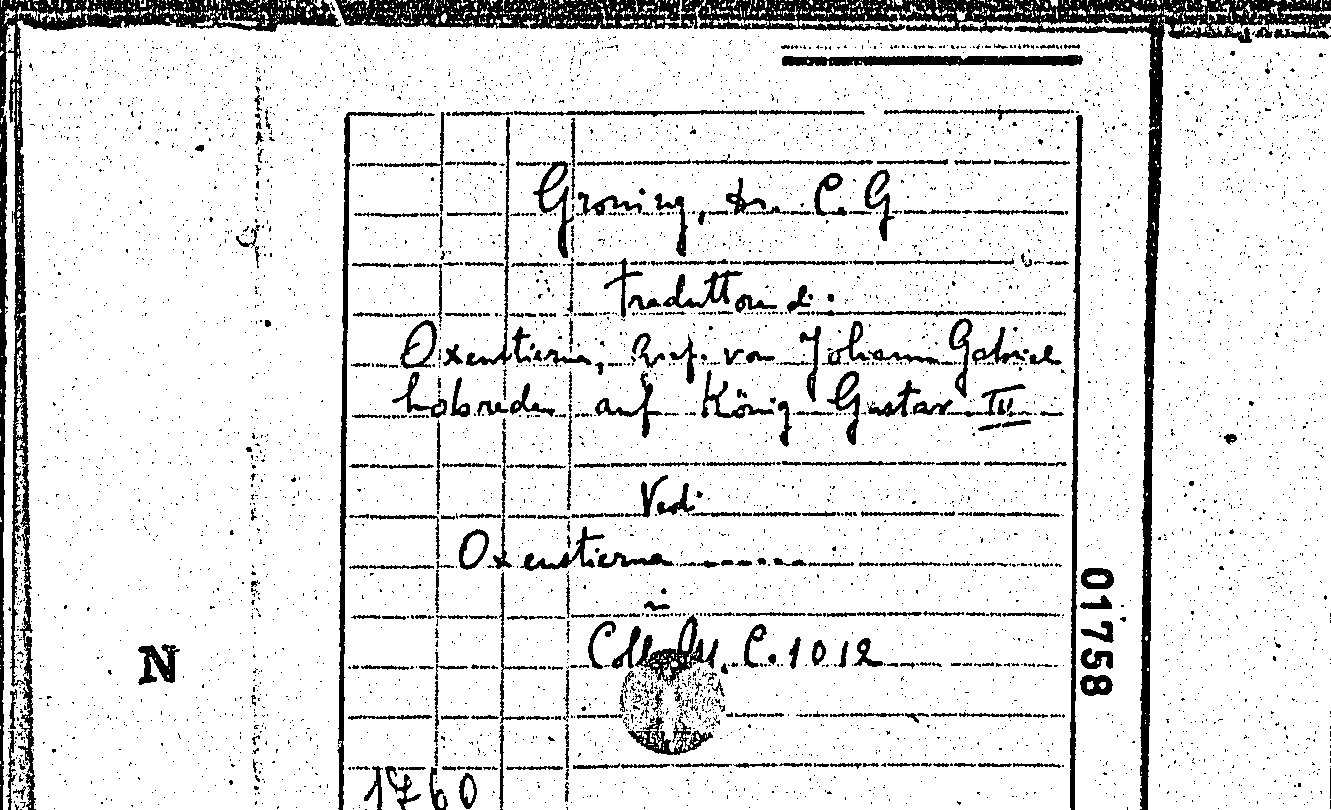 Groning, dr. C. G
Traduttore di:
Oxenstierna, Graf. von Johann Gabriel
Lobreden auf König Gustav III
Vedi
Oxenstierna ------
in
C. 1012
1760
N
01758